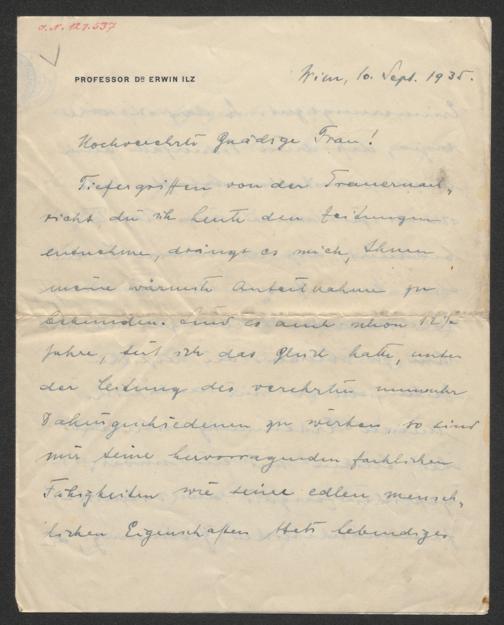 J.N. 127.537
PROFESSOR DR ERWIN ILZ
Wien, 10. Sept. 1935.
Hochverehrte Gnädige Frau!
Tiefergriffen von der Trauernach-
richt die ich heute den Zeitungen
entnehme, drängt es mich, Ihnen
meine wärmste Anteilnahme zu
bekunden. Sind es auch schon 12½
Jahre, seit ich das Glück hatte, unter
der Leitung des verehrten nunmehr
Dahingeschiedenen zu wirken, so sind
mir seine hervorragenden fachlichen
Fähigkeiten wie seine edlen mensch-
lichen Eigenschaften stets lebendiges